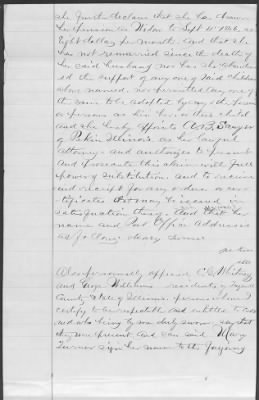 she further declares that she has drawn
her pension as Widow to Sept 4" 1866, at
Eight dollars per month. And that she
has not remarried since the death of
her said husband nor has she abandon
ed the support of any one of said children
above named, nor permitted any one of
the same to be adopted by any other person
or persons as his her or their child
and she hereby appoints A. B. Sawyer
of Pekin Illinois as her lawful
Attorney and authorizes to present
and prosecute this claim with full
power of substitution. And to receive
and receipt for any orders or cer
tificates that may be issued in
satisfaction thereof. And that her
name and Post Office Address are
as follows Mary Turner
Pekin
Ills
Also personally appeared C. G. Whitney
and George Williams residents of Tazewell
County State of Illinois. persons whom I
certify to be respectable and entitled to cred
it and who being by me duly sworn, say that
they were present and saw said Mary
Turner sign her name to the foregoing